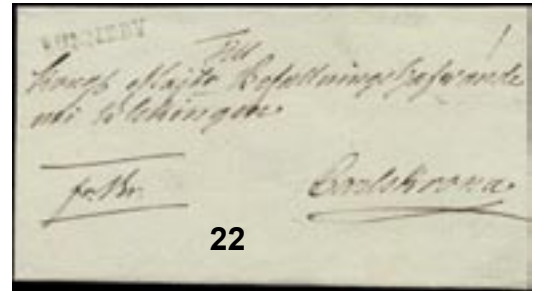 Till
Kongl Majts Befallningshafwande
uti Blekingen
fr. Br.
Carlskrona
22